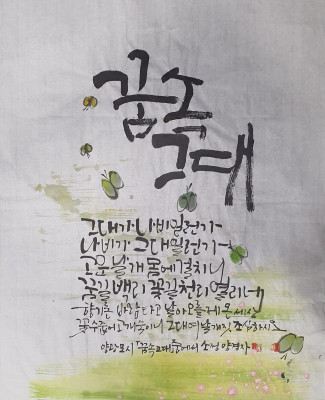 꿈속
그대
그대가 나비일런가
나비가 그대일런가
고운 날개 몸에 걸치니
꿈길 백리 꽃길 천리 열리네
향기론 바람 타고 날아오를제 온 세상
꽃수줍어 고개숙이니 그대여 날개짓 조심하시오
꿈속그대 중에서